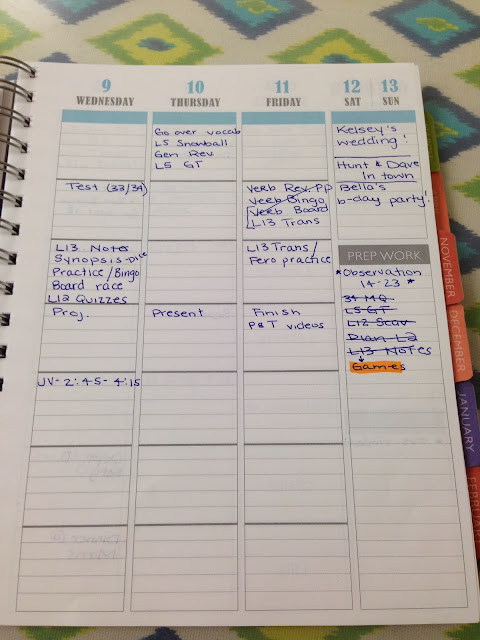 9
WEDNESDAY
Test (33/34)
L13 Notes
Synopsis-Dice
Practice/Bingo
Board race
L12 Quizzes
Proj.
JV- 2:45- 4:15
10
THURSDAY
Go over vocab
L5 Snowball
Gen Rev.
L5 GT
Present
11
FRIDAY
Verb Rev. PP
Verb Bingo
Verb Board
L13 Trans
L13 Trans/
Pero practice
Finish
P&T videos
12
SAT
13
SUN
Kelsey's
wedding!
Hunt & Dave
in town
Bella's
b-day party!
PREP WORK
*Observation
14-23 *
34 MQ
L5 GT
L12 Scav
L13 Notes
Games
NOVEMBER
DECEMBER
JANUARY
FEBRUARY